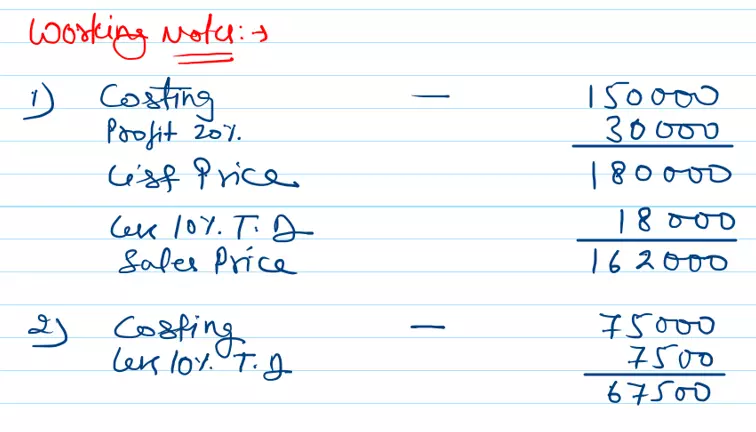 Working Notes:→
1) Costing — 150000
Profit 20% 30000
List Price 180000
Less 10% T.D 18000
Sales Price 162000
2) Costing — 75000
Less 10% T.D 7500
67500